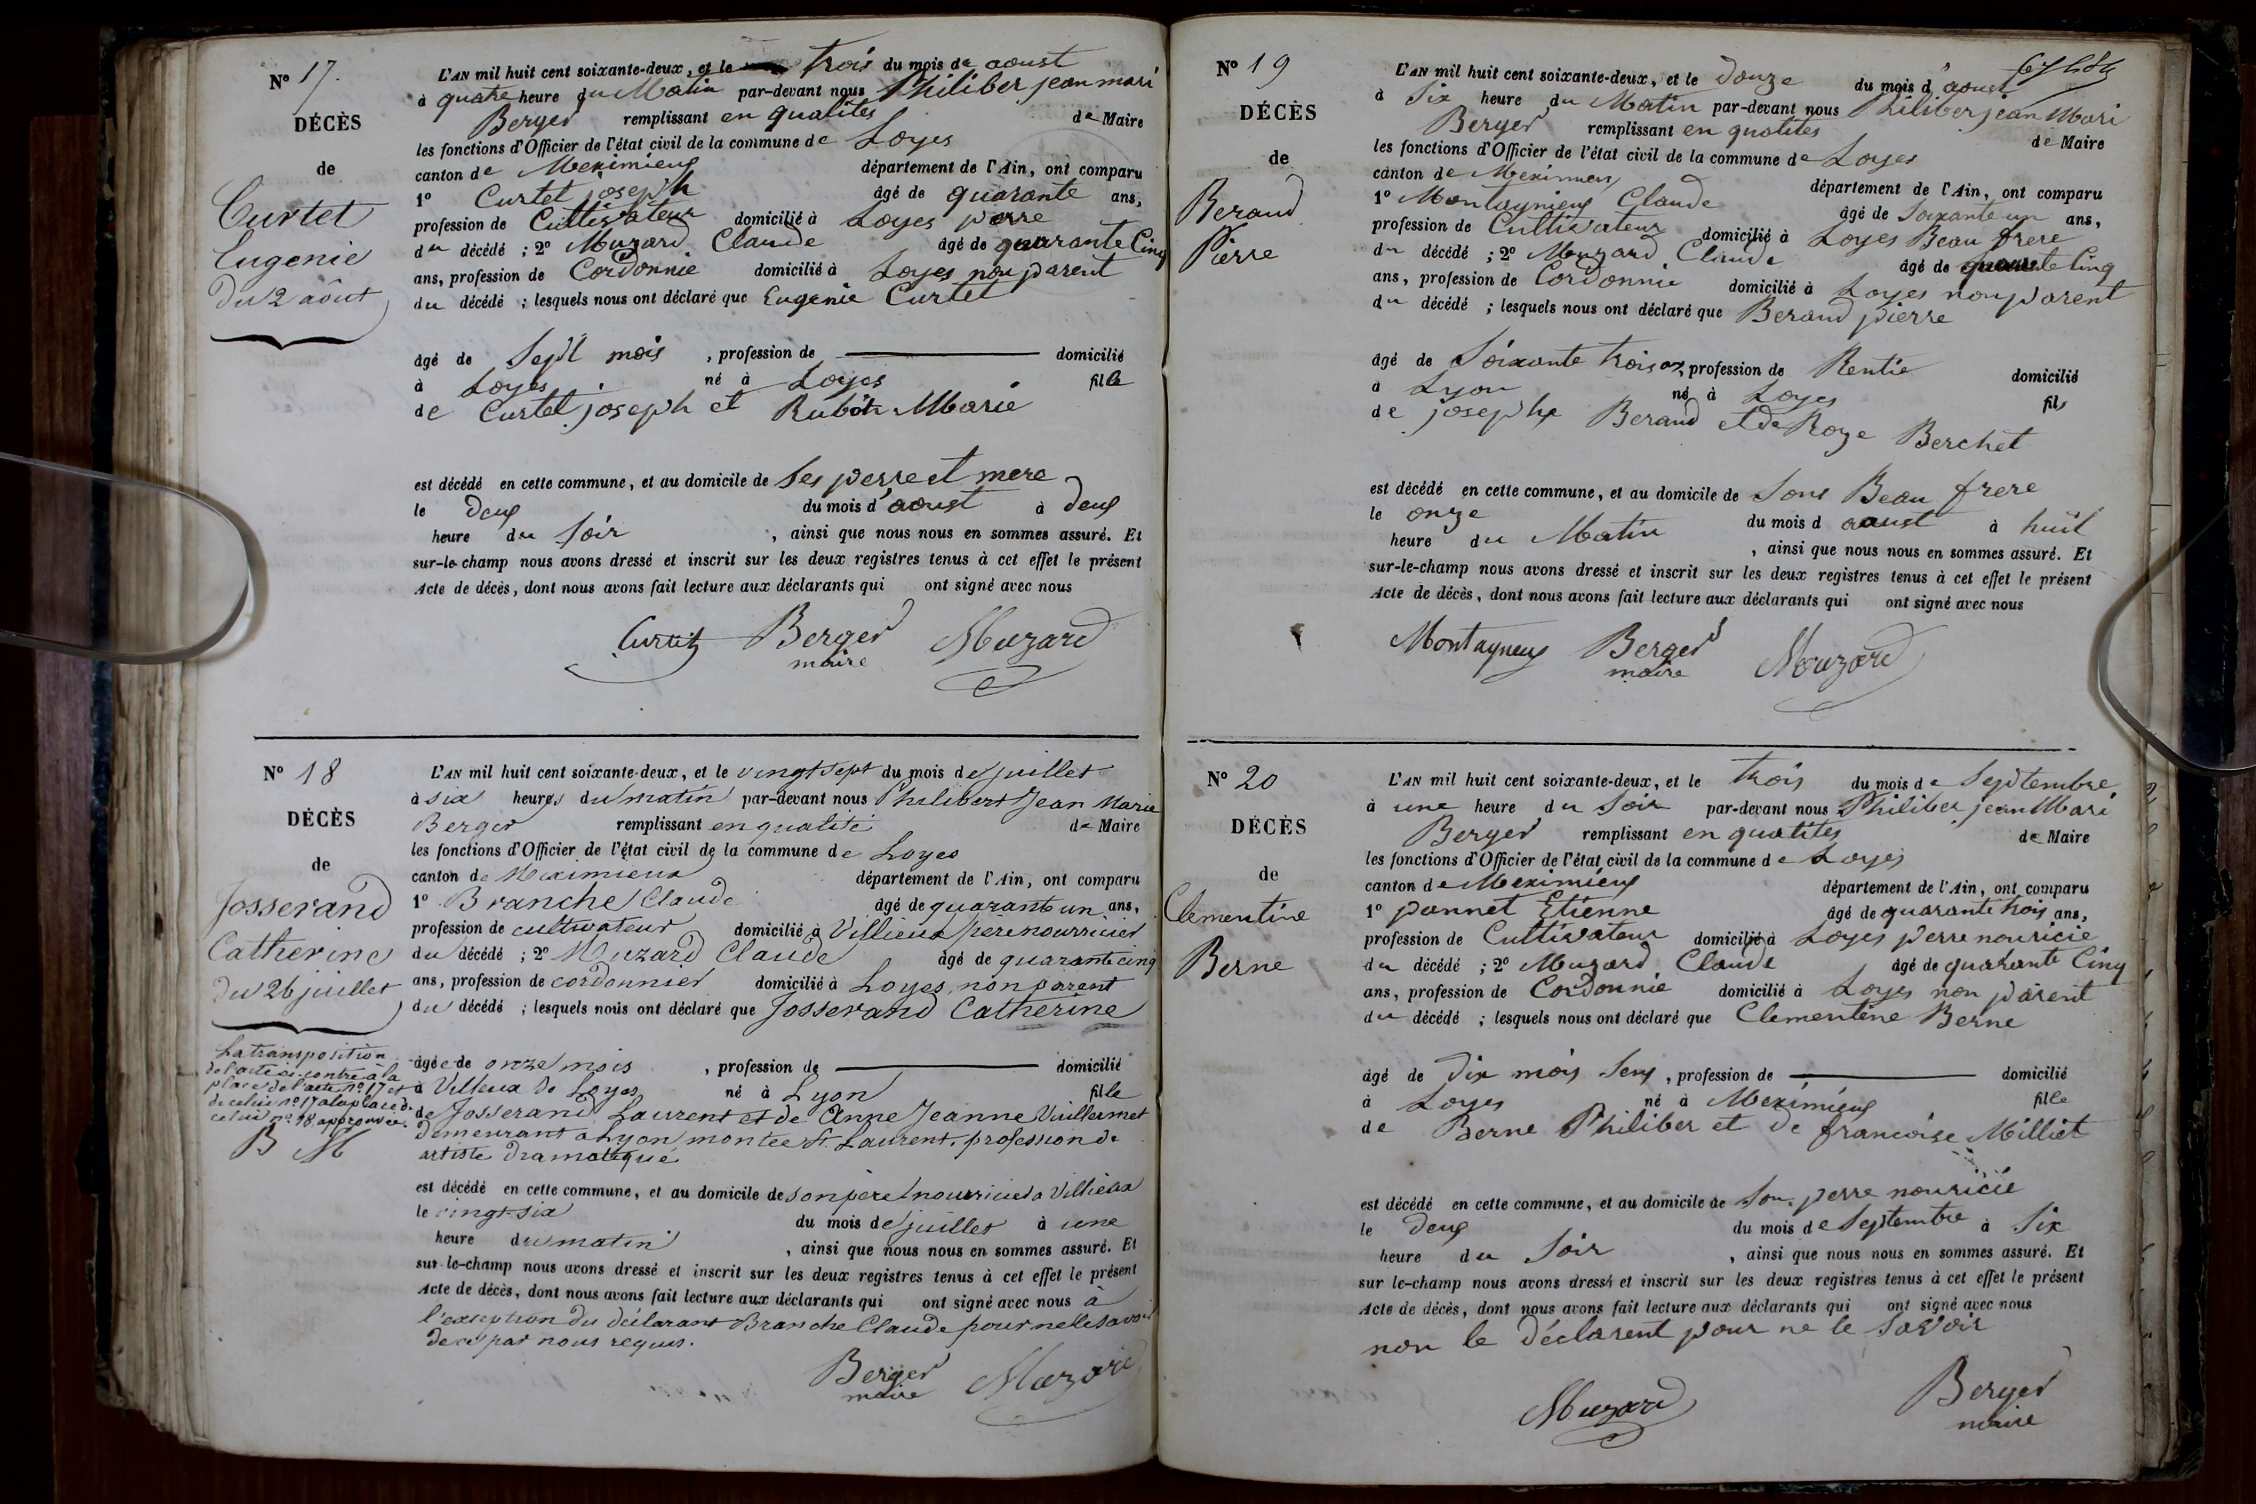 N° 17.
DÉCÈS
de
Curtet
Eugenie
du 2 aôut
L'AN mil huit cent soixante-deux, et le trois du mois de aoust
à quatre heure du Matin par-devant nous Philiber jean mari
Berger remplissant en qualites de Maire
les fonctions d'Officier de l'état civil de la commune de Loyes
canton de Meximieux département de l'Ain, ont comparu
1° Curtet joseph âgé de quarante ans,
profession de Cultivateur domicilié à Loyes perre
du décédé ; 2° Muzard Claude âgé de quarante Cinq
ans, profession de Cordonnie domicilié à Loyes non parent
du décédé ; lesquels nous ont déclaré que Eugenie Curtet
âgé de Sept mois , profession de domicilié
à Loyes né à Loyes fille
de Curtet joseph et Marie
est décédé en cette commune, et au domicile de Ses perre et mere
le deux du mois d'aoust à deux
heure du Soir , ainsi que nous nous en sommes assuré. Et
sur-le-champ nous avons dressé et inscrit sur les deux registres tenus à cet effet le présent
Acte de décès, dont nous avons fait lecture aux déclarants qui ont signé avec nous
Curtet Berger Muzard
maire
N° 18
DÉCÈS
de
Josserand
Catherine
du 26 juillet
La transposition
de l'acte ci-contre à la
place de l'acte n° 17 et
de celui n° 17 à la place de
celui n° 18 approuvée.
B M
L'AN mil huit cent soixante-deux, et le vingt sept du mois de juillet
à six heures du matin par-devant nous Philibert Jean Marie
Berger remplissant en qualité de Maire
les fonctions d'Officier de l'état civil de la commune de Loyes
canton de Meximieux département de l'Ain, ont comparu
1° Branche Claude âgé de quarante un ans,
profession de cultivateur domicilié à Villieux père nourricier
du décédé ; 2° Muzard Claude âgé de quarante cinq
ans, profession de cordonnier domicilié à Loyes, non parent
du décédé ; lesquels nous ont déclaré que Josserand Catherine
âgée de onze mois , profession de domicilié
à Villieux de Loyes né à Lyon fille
de Josserand Laurent et de Anne Jeanne Vuillermet
demeurant à Lyon montée St Laurent, profession de
artiste dramatique
est décédé en cette commune, et au domicile de son père nourricier à Villieux
le vingt-six du mois de juillet à une
heure du matin , ainsi que nous nous en sommes assuré. Et
sur-le-champ nous avons dressé et inscrit sur les deux registres tenus à cet effet le présent
Acte de décès, dont nous avons fait lecture aux déclarants qui ont signé avec nous à
l'exception du déclarant Branche Claude pour ne le savoir
de ce par nous requis.
Berger Muzard
maire
N° 19
DÉCÈS
de
Beraud
Pierre
L'AN mil huit cent soixante-deux, et le douze du mois d'aoust
à Six heure du Matin par-devant nous Philiber jean Mari
Berger remplissant en qualites de Maire
les fonctions d'Officier de l'état civil de la commune de Loyes
canton de Meximieux département de l'Ain, ont comparu
1° Montagnieux Claude âgé de Soixante un ans,
profession de Cultivateur domicilié à Loyes Beau frere
du décédé ; 2° Muzard Claude âgé de quarante Cinq
ans, profession de Cordonnie domicilié à Loyes non parent
du décédé ; lesquels nous ont déclaré que Beraud pierre
âgé de Soixante trois ans, profession de Rentie domicilié
à Lyon né à Loyes fils
de josephe Beraud et de Roze Berchet
est décédé en cette commune, et au domicile de Sons Beau frere
le onze du mois d aoust à huit
heure du Matin , ainsi que nous nous en sommes assuré. Et
sur-le-champ nous avons dressé et inscrit sur les deux registres tenus à cet effet le présent
Acte de décès, dont nous avons fait lecture aux déclarants qui ont signé avec nous
Montagneux Berger Muzard
maire
N° 20
DÉCÈS
de
Clementine
Berne
L'AN mil huit cent soixante-deux, et le trois du mois de Septembre
à une heure du Soir par-devant nous Philiber jean Mari
Berger remplissant en qualites de Maire
les fonctions d'Officier de l'état civil de la commune de Loyes
canton de Meximieux département de l'Ain, ont comparu
1° pannet Etienne âgé de quarante trois ans,
profession de Cultivateur domicilié à Loyes perre nouricie
du décédé ; 2° Muzard Claude âgé de quarante Cinq
ans, profession de Cordonnie domicilié à Loyes non parent
du décédé ; lesquels nous ont déclaré que Clementine Berne
âgé de dix mois , profession de domicilié
à Loyes né à Meximieux fille
de Berne Philiber et de francoise Milliet
est décédé en cette commune, et au domicile de Son perre nouricié
le deux du mois de Septembre à Six
heure du Soir , ainsi que nous nous en sommes assuré. Et
sur le-champ nous avons dressé et inscrit sur les deux registres tenus à cet effet le présent
Acte de décès, dont nous avons fait lecture aux déclarants qui ont signé avec nous
non le déclarent pour ne le savoir
Muzard Berger
maire